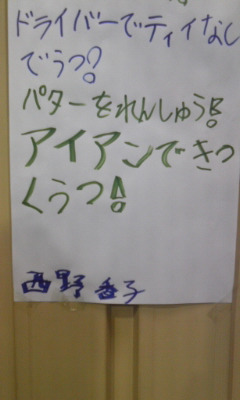 ドライバーでティイなし
でうつ!
パターをれんしゅう!
アイアンできっ
くうつ!
西野香子